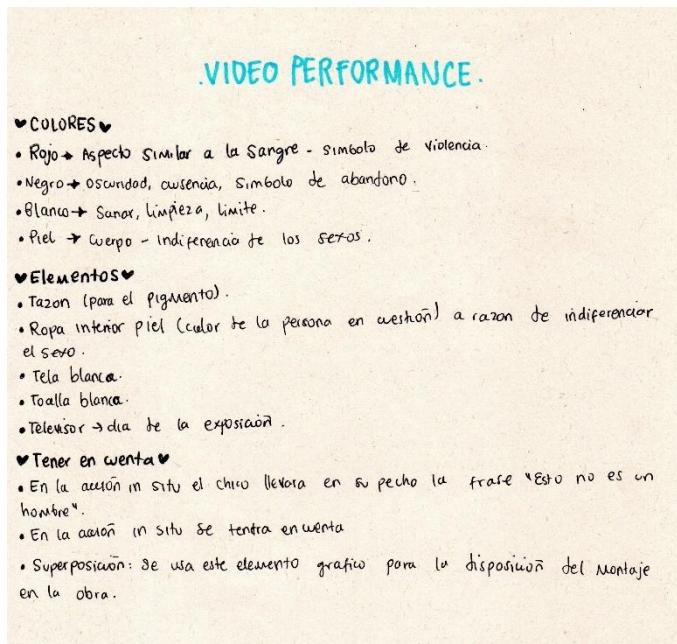 .VIDEO PERFORMANCE.
♥COLORES♥
• Rojo → Aspecto similar a la sangre - simbolo de violencia.
• Negro → oscuridad, ausencia, simbolo de abandono.
• Blanco → Sanar, limpieza, limite.
• Piel → cuerpo - indiferencia de los sexos.
♥Elementos♥
• Tazon (para el pigmento).
• Ropa interior piel (color de la persona en cuestión) a razon de indiferenciar
el sexo.
• Tela blanca.
• Toalla blanca.
• Televisor → dia de la exposición.
♥ Tener en cuenta ♥
• En la acción in situ el chico llevara en su pecho la frase "Esto no es un
hombre".
• En la acción in situ se tendra en cuenta
• Superposición: Se usa este elemento grafico para la disposición del montaje
en la obra.